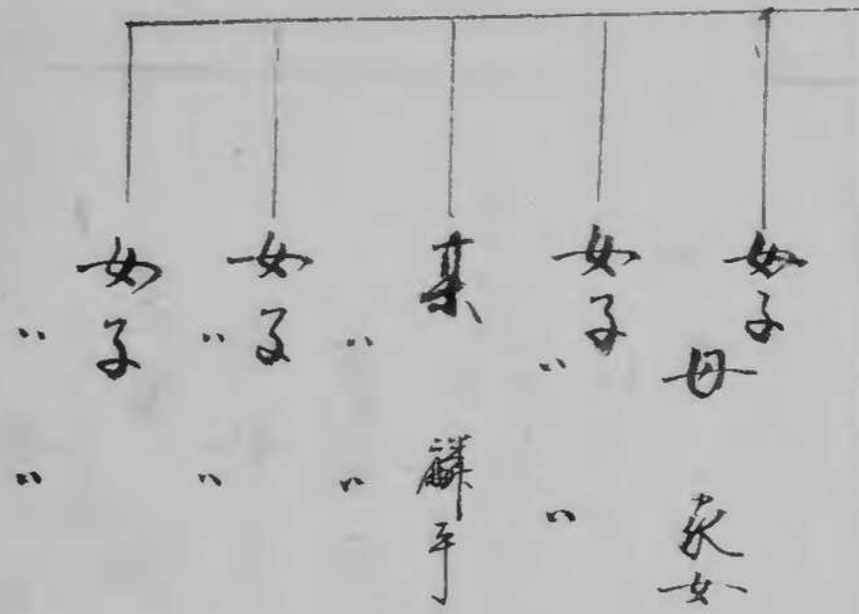 女子
母 家女
女子
〃 〃
某 麟平
〃 〃
女子
〃 〃
女子
〃 〃